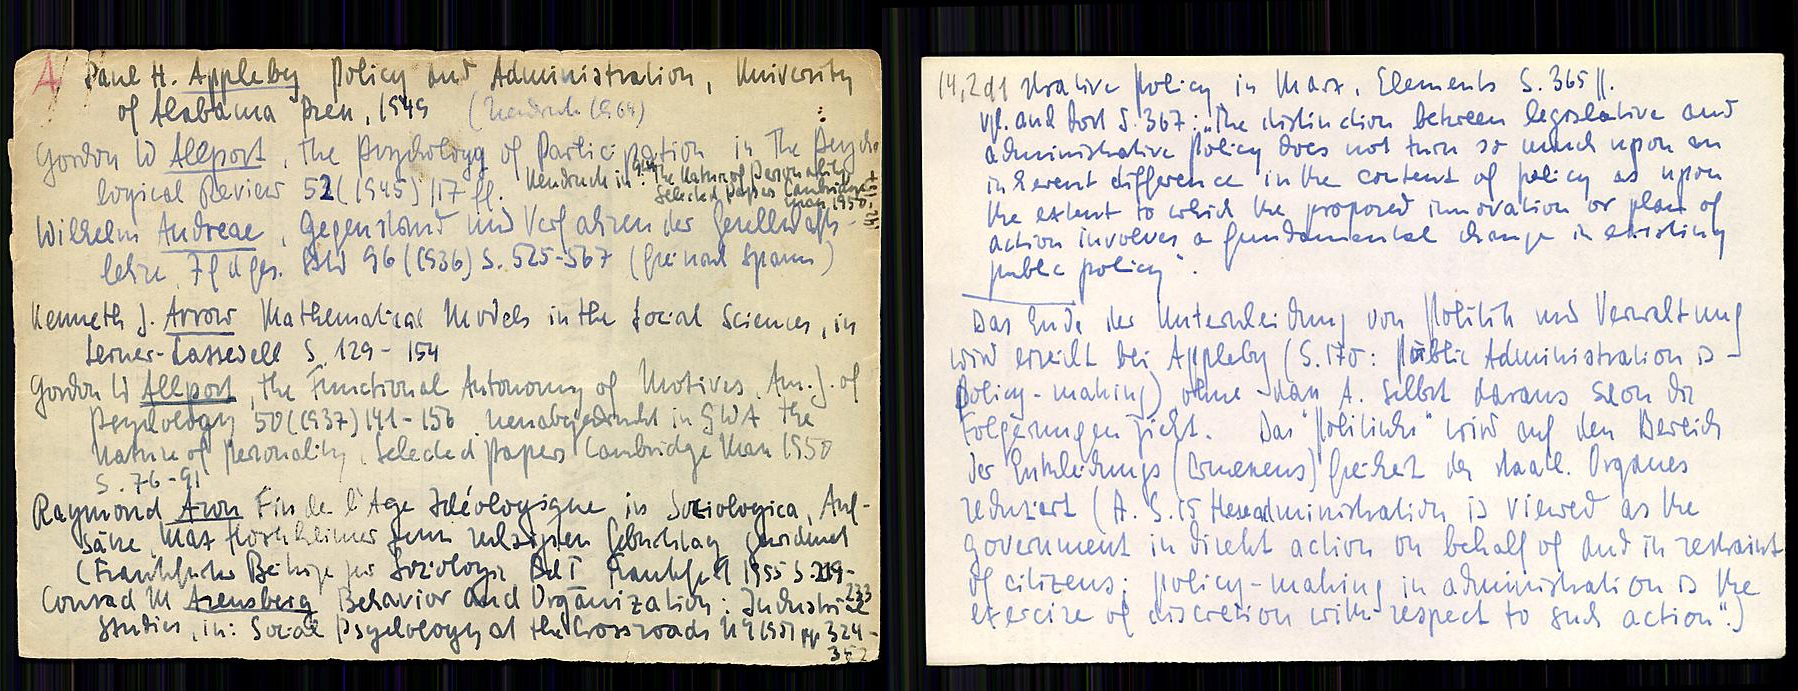 A
Paul H. Appleby Policy and Administration, University
of Alabama Press, 1949 (Neudruck 1964)
Gordon W Allport, The Psychology of Participation in The Psycho-
logical Review 52 (1945) 117 ff. Neudruck in: The Nature of Personality
Selected Papers Cambridge
Mass. 1950.
Wilhelm Andreae, Gegenstand und Verfahren der Gesellschafts-
lehre, Zf d ges. StW 96 (1936) S. 525-567
Kenneth J. Arrow Mathematical Models in the Social Sciences, in
Lerner-Lasswell S. 129 - 154
Gordon W Allport, The Functional Autonomy of Motives, Am. J. of
Psychology 50 (1937) 141 - 156 neuabgedruckt in GWA The
Nature of Personality, Selected Papers Cambridge Mass 1950
S. 76-91
Raymond Aron Fin de l'Age Idéologique in Sociologica, Auf-
sätze, Max Horkheimer zum sechzigsten Geburtstag gewidmet
(Frankfurter Beiträge zur Soziologie Bd I Frankfurt 1955 S. 219-
233
Conrad M Arensberg Behavior and Organization: Industrial
Studies, in: Social Psychology at the Crossroads NY 1951 pp 324-
352
14,2d1 strative Policy in Marx, Elements S. 365 ff.
vgl. auch dort S. 367: "The distinction between legislative and
administrative policy does not turn so much upon an
inherent difference in the content of policy as upon
the extent to which the proposed innovation or plan of
action involves a fundamental change in existing
public policy".
Das Ende der Unterscheidung von Politik und Verwaltung
wird erreicht bei Appleby (S. 170: Public Administration is
policy-making) ohne dass A. selbst daraus schon die
Folgerungen zieht. Das "Politische" wird auf den Bereich
der Entscheidungs freiheit der staatl. Organes
reduziert (A. S. 15 Here administration is viewed as the
government in direkt action on behalf of and in restraint
of citizens; policy-making in administration is the
exercize of discretion with respect to such action".)